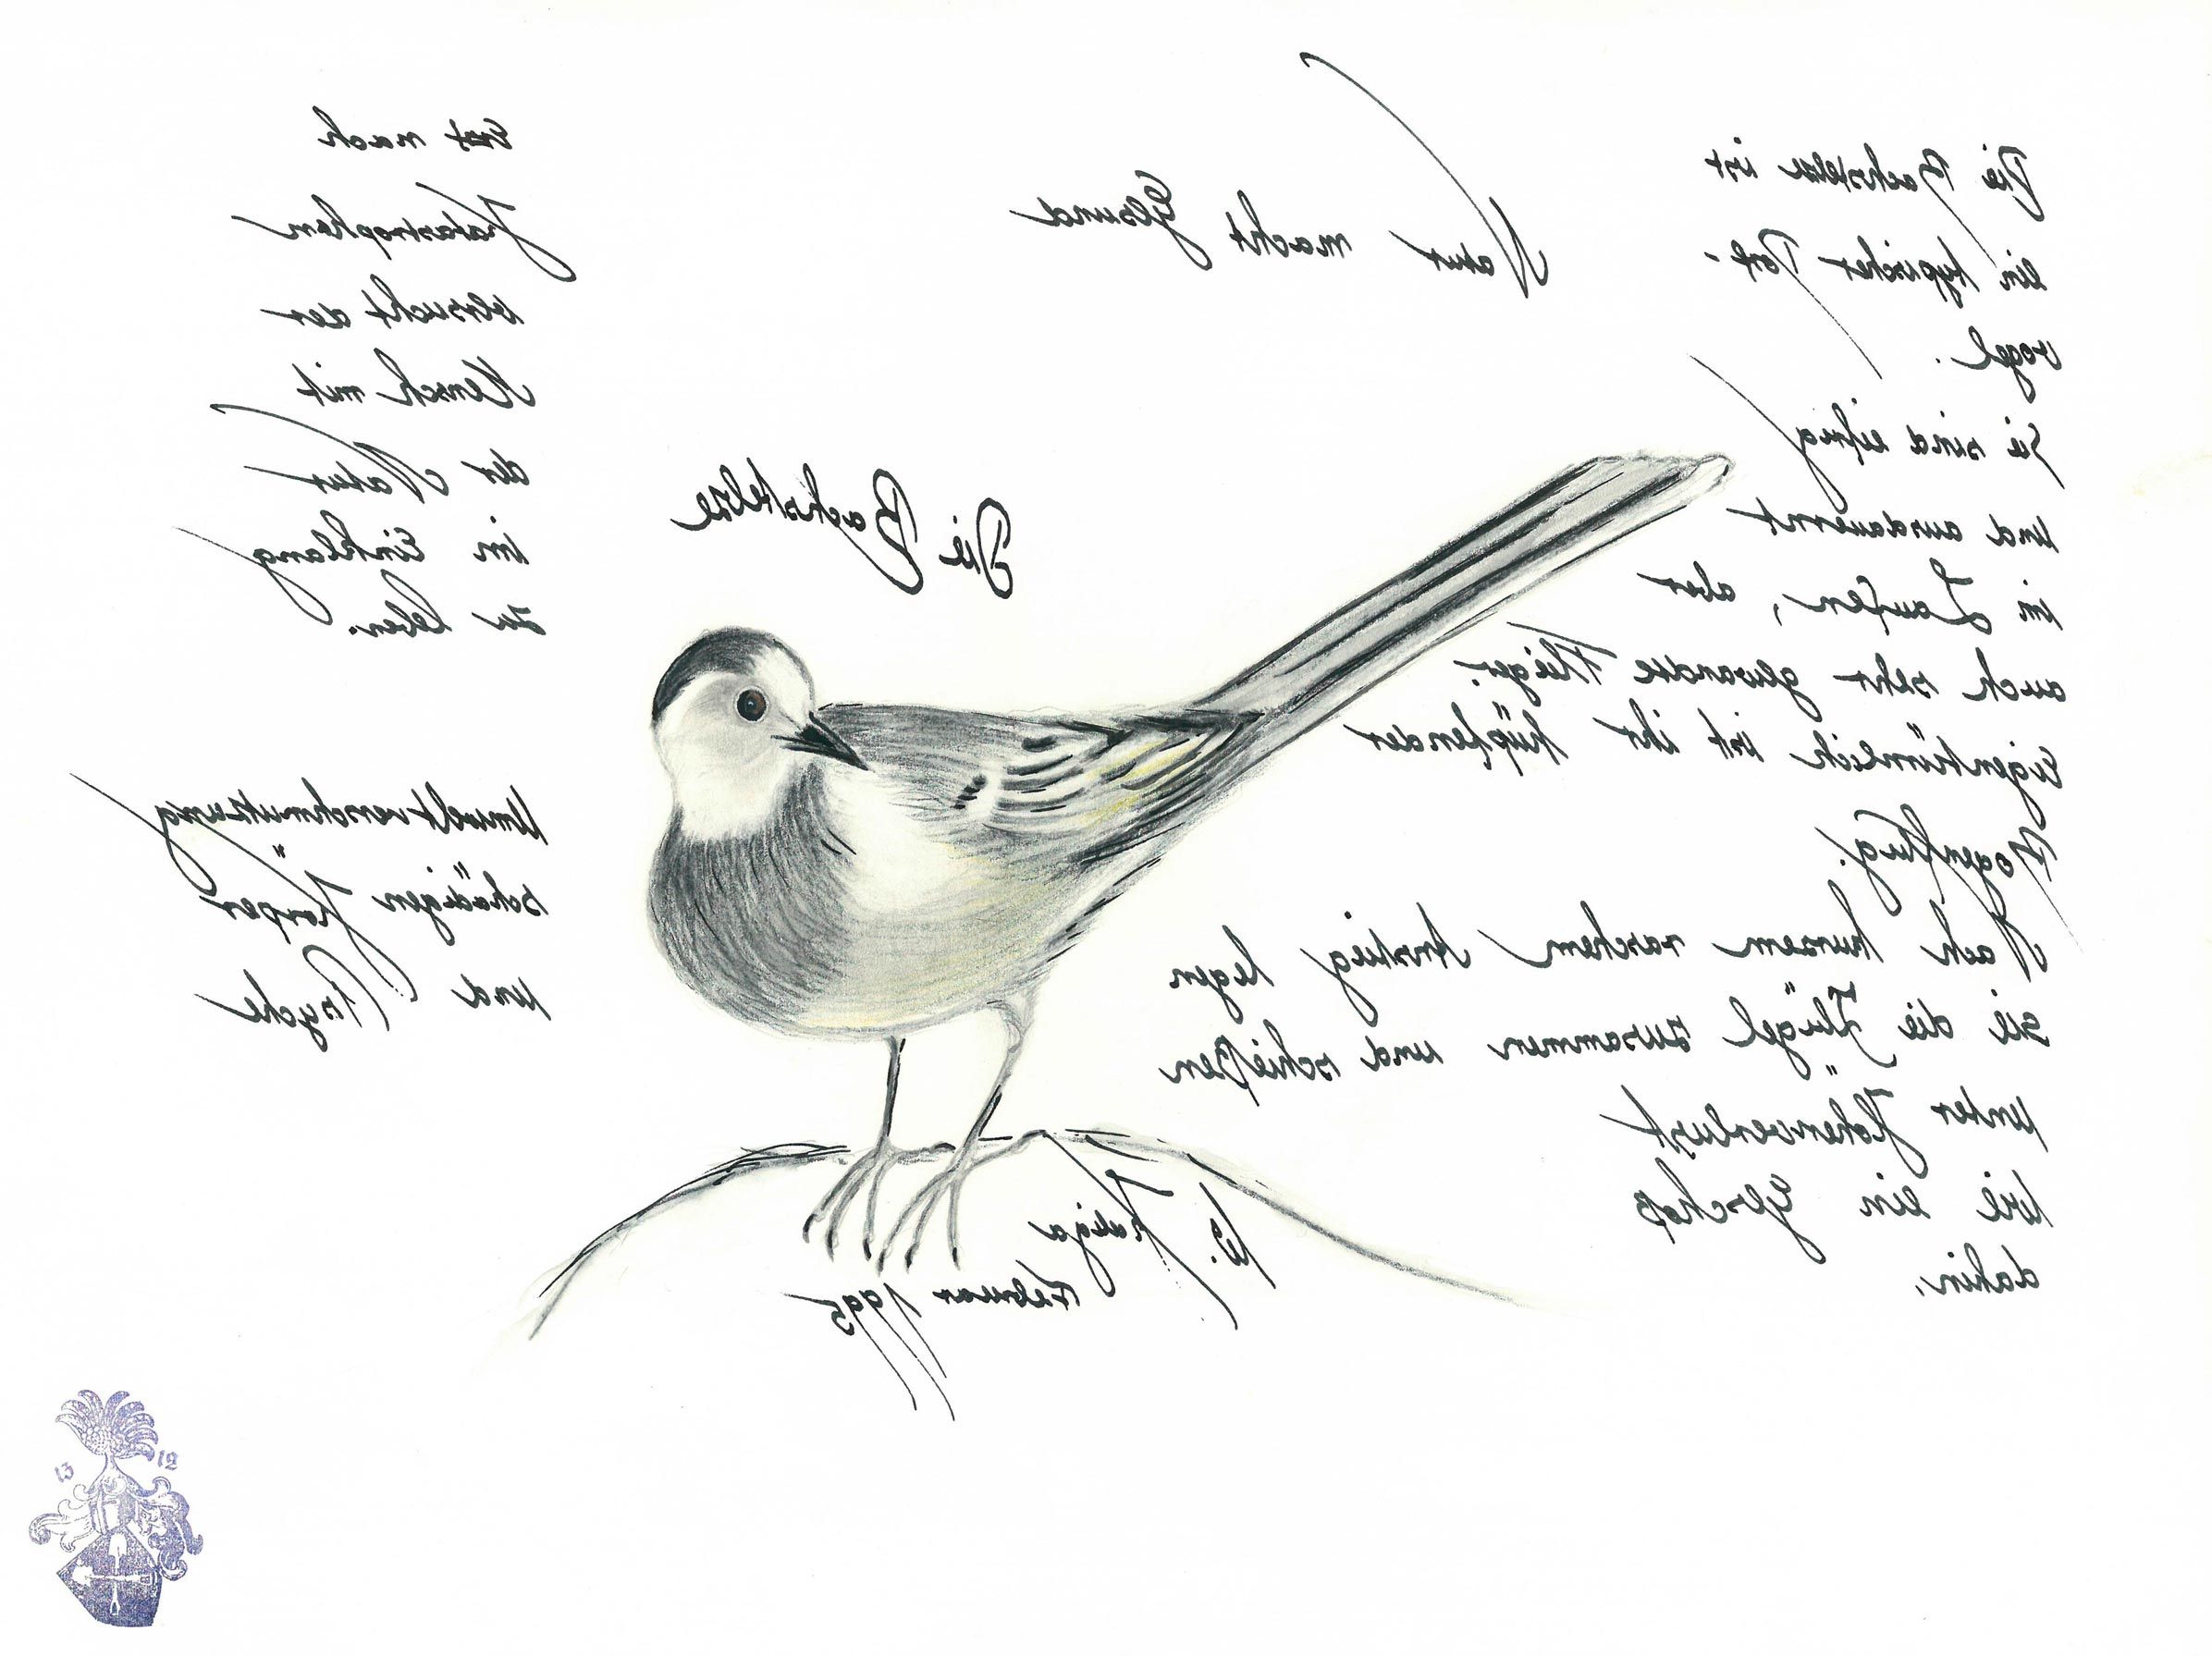 Die Bachstelze ist
ein typischer Dorf-
vogel.
Sie sind eifrig
und ausdauernt
im Laufen, aber
auch sehr gewandte Flieger.
Eigentümlich ist ihr hüpfender
Bogenflug.
Nach kurzem raschem Anstieg legen
sie die Flügel zusammen und schießen
unter Höhenverlust
wie ein Geschoß
dahin.
Natur macht Gesund
Die Bachstelze
Erst nach
Katastrophen
versucht der
Mensch mit
der Natur
im Einklang
zu leben.
Umweltverschmutzung
schädigen Körper
und Psyche
W. Kaliga
Februar 1995
13 12